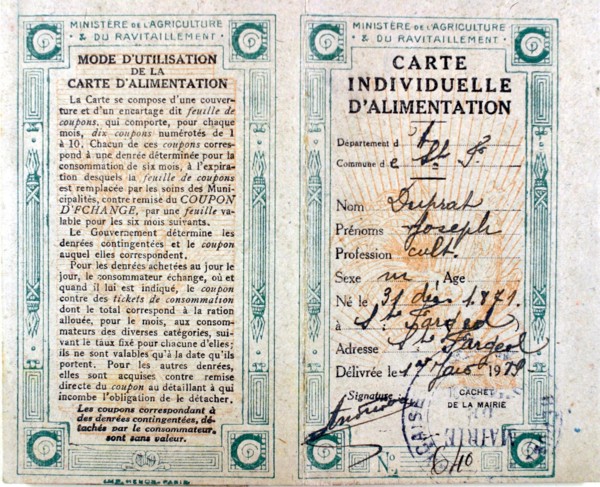 MINISTÈRE DE L'AGRICULTURE
& DU RAVITAILLEMENT
MODE D'UTILISATION
DE LA
CARTE D'ALIMENTATION
La Carte se compose d'une couver-
ture et d'un encartage dit feuille de
coupons, qui comporte, pour chaque
mois, dix coupons numérotés de 1
à 10. Chacun de ces coupons corres-
pond à une denrée déterminée pour la
consommation de six mois, à l'expi-
ration desquels la feuille de coupons
est remplacée par les soins des Muni-
cipalités, contre remise du COUPON
D'ÉCHANGE, par une feuille va-
lable pour les six mois suivants.
Le Gouvernement détermine les
denrées contingentées et le coupon
auquel elles correspondent.
Pour les denrées achetées au jour le
jour, le consommateur échange, où et
quand il lui est indiqué, le coupon
contre des tickets de consommation
dont le total correspond à la ration
allouée, pour le mois, aux consom-
mateurs des diverses catégories, sui-
vant le taux fixé pour chacune d'elles;
ils ne sont valables qu'à la date qu'ils
portent. Pour les autres denrées,
elles sont acquises contre remise
directe du coupon au détaillant à qui
incombe l'obligation de le détacher.
Les coupons correspondant à
des denrées contingentées, dé-
tachés par le consommateur,
sont sans valeur.
IMP. HENON. PARIS
MINISTÈRE DE L'AGRICULTURE
& DU RAVITAILLEMENT
CARTE
INDIVIDUELLE
D'ALIMENTATION
Département d
Commune de
Nom Duprat
Prénoms Joseph
Profession cult.
Sexe m Age
Né le 31 déc 1.871.
à Ste Fargeol
Adresse Ste Fargeol
Délivrée le 1er 19
Signature
CACHET
DE LA MAIRIE
MAIRIE
N° 640